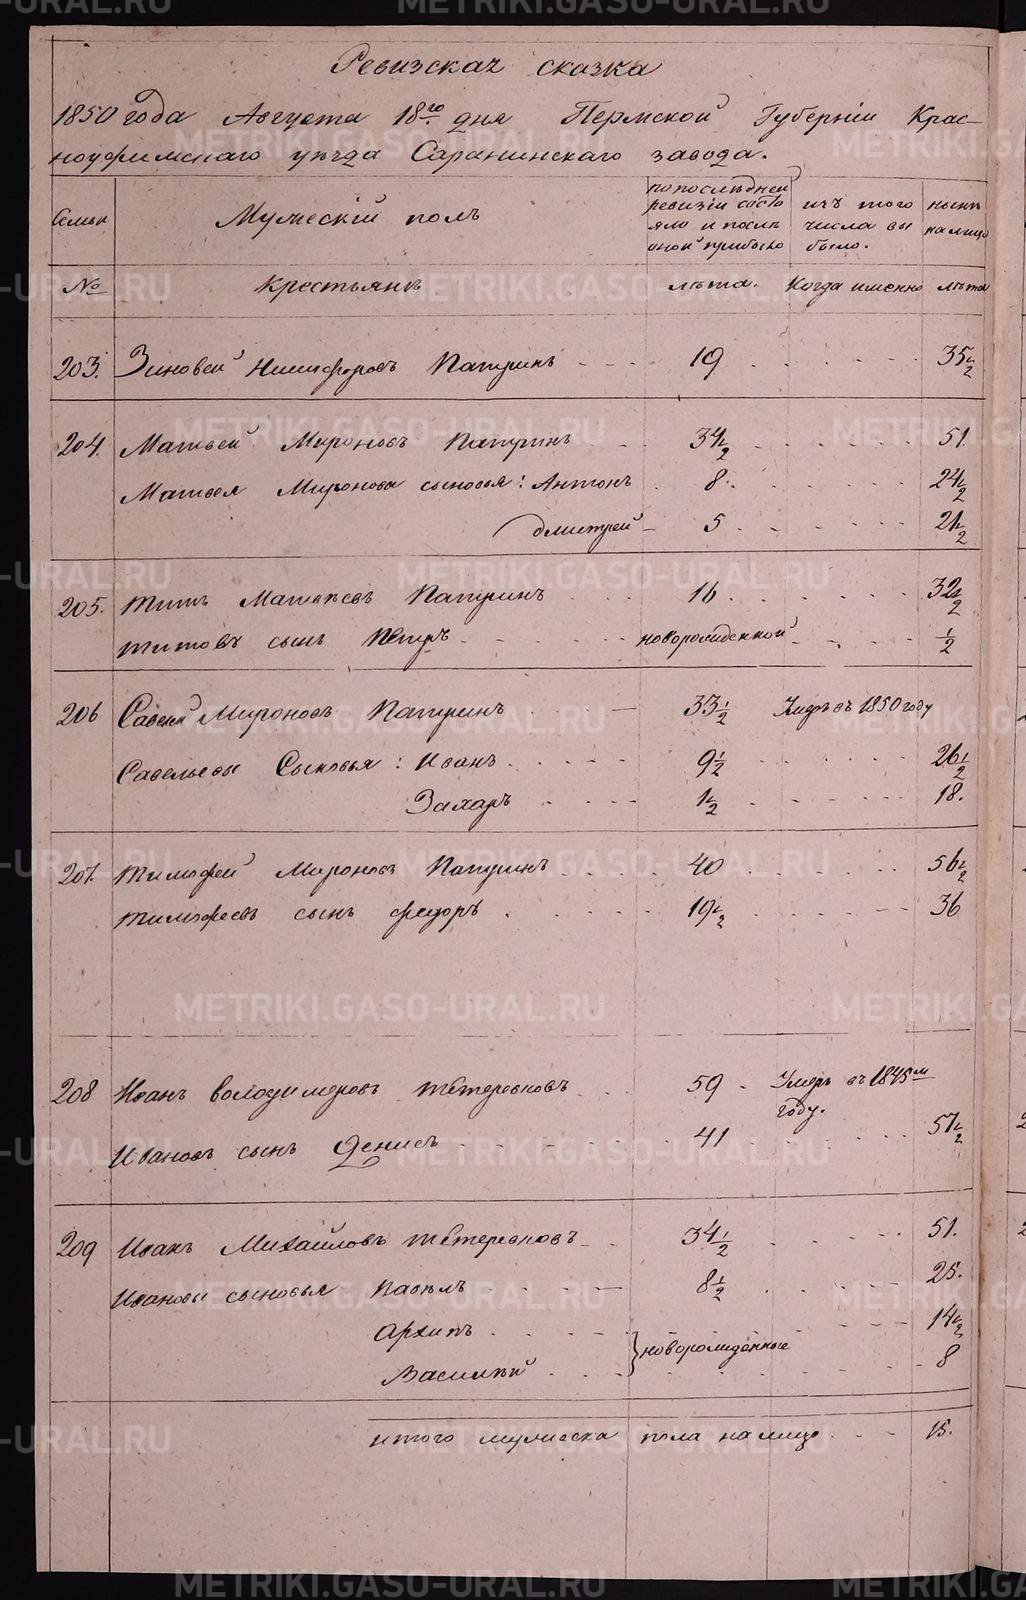 Ревизская сказка
1850 года Августа 18го дня Пермской Губернiи Крас-
ноуфимскаго уѣзда Саранинскаго завода.
Семьи
Мужескiй полъ
по последней
ревизiи состо
яло и послѣ
оной прибыло
изъ того
числа вы
было.
нынѣ
на лицо
№
Крестьянъ
лѣта.
Когда именно
лѣта
203. Зиновей Никифоровъ Патринъ 19 35½
204. Матвей Мироновъ Патринъ 34½ 51.
Матвея Миронова сыновья: Антонъ 8. 24½
Дмитрей 5 21½
205. Титъ Матвѣевъ Патринъ 16 32½
Титовъ сынъ Петръ новорожденной ½
206 Савелей Мироновъ Патринъ 33½ Умеръ въ 1850 году
Савельевы Сыновья: Иванъ 9½ 26½
Захаръ 1½ 18.
207. Тимофей Мироновъ Патринъ 40 56½
Тимофеевъ сынъ Федоръ 19½ 36
208 Иванъ Володимеровъ Тетеревковъ 59 Умеръ въ 1845м
году.
Ивановъ сынъ Денисъ 41 57½
209 Иванъ Михайловъ Тетеревковъ 34½ 51.
Ивановы сыновья Павелъ 8½ 25.
Архипъ 14½
новорожденные
Василей 8
итого мужеска пола на лицо 15.
METRIKI.GASO-URAL.RU